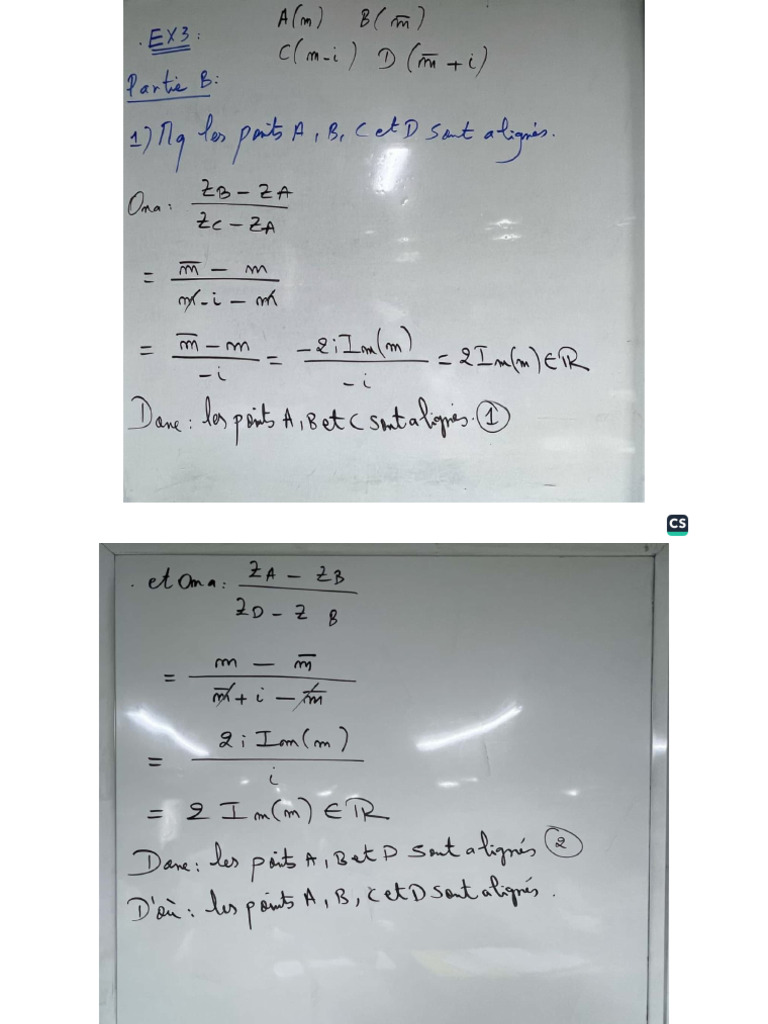 A(m) B(m̅)
. EX3:
C(m-i) D(m̅+i)
Partie B:
1) Mq les points A, B, C et D sont alignés.
On a: (z_B - z_A)/(z_C - z_A)
= (m̅ - m)/(m - i - m)
= (m̅ - m)/(-i) = (-2i Im(m))/(-i) = 2 Im(m) ∈ ℝ
Donc: les points A, B et C sont alignés. ①
CS
. et On a: (z_A - z_B)/(z_D - z_B)
= (m - m̅)/(m̅ + i - m̅)
= (2i Im(m))/i
= 2 Im(m) ∈ ℝ
Donc: les points A, B et D sont alignés ②
D'où: les points A, B, C et D sont alignés.